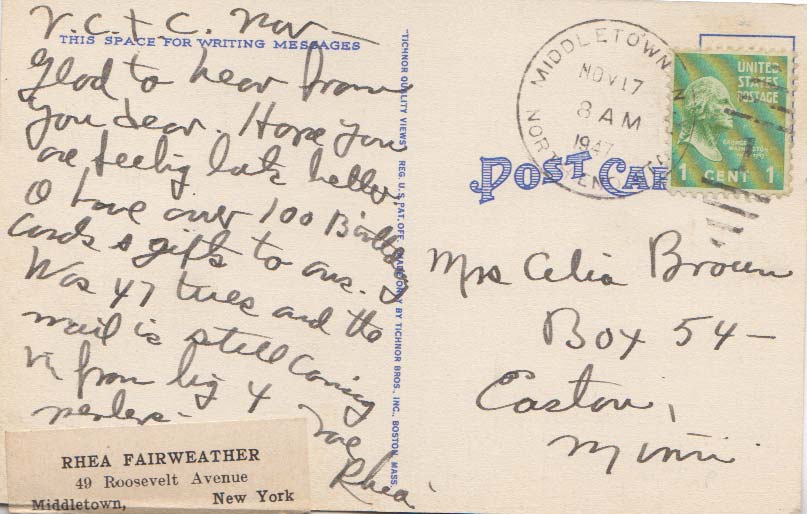 V.C.+C. Nov —
THIS SPACE FOR WRITING MESSAGES
Glad to hear from
you dear. Hope you
are feeling lots better
I have over 100 Birthday
cards & gifts to ans. I
Was 47 tues and the
mail is still coming
in from big 4
Rhea
RHEA FAIRWEATHER
49 Roosevelt Avenue
Middletown, New York
"TICHNOR QUALITY VIEWS" REG. U. S. PAT. OFF. MADE ONLY BY TICHNOR BROS., INC., BOSTON, MASS.
MIDDLETOWN N
NOV 17
8 AM
1947
UNITED
STATES
POSTAGE
GEORGE
WASHINGTON
1 CENT 1
POST CAR
Mrs Celia Brown
Box 54 —
Easton,
Minn.